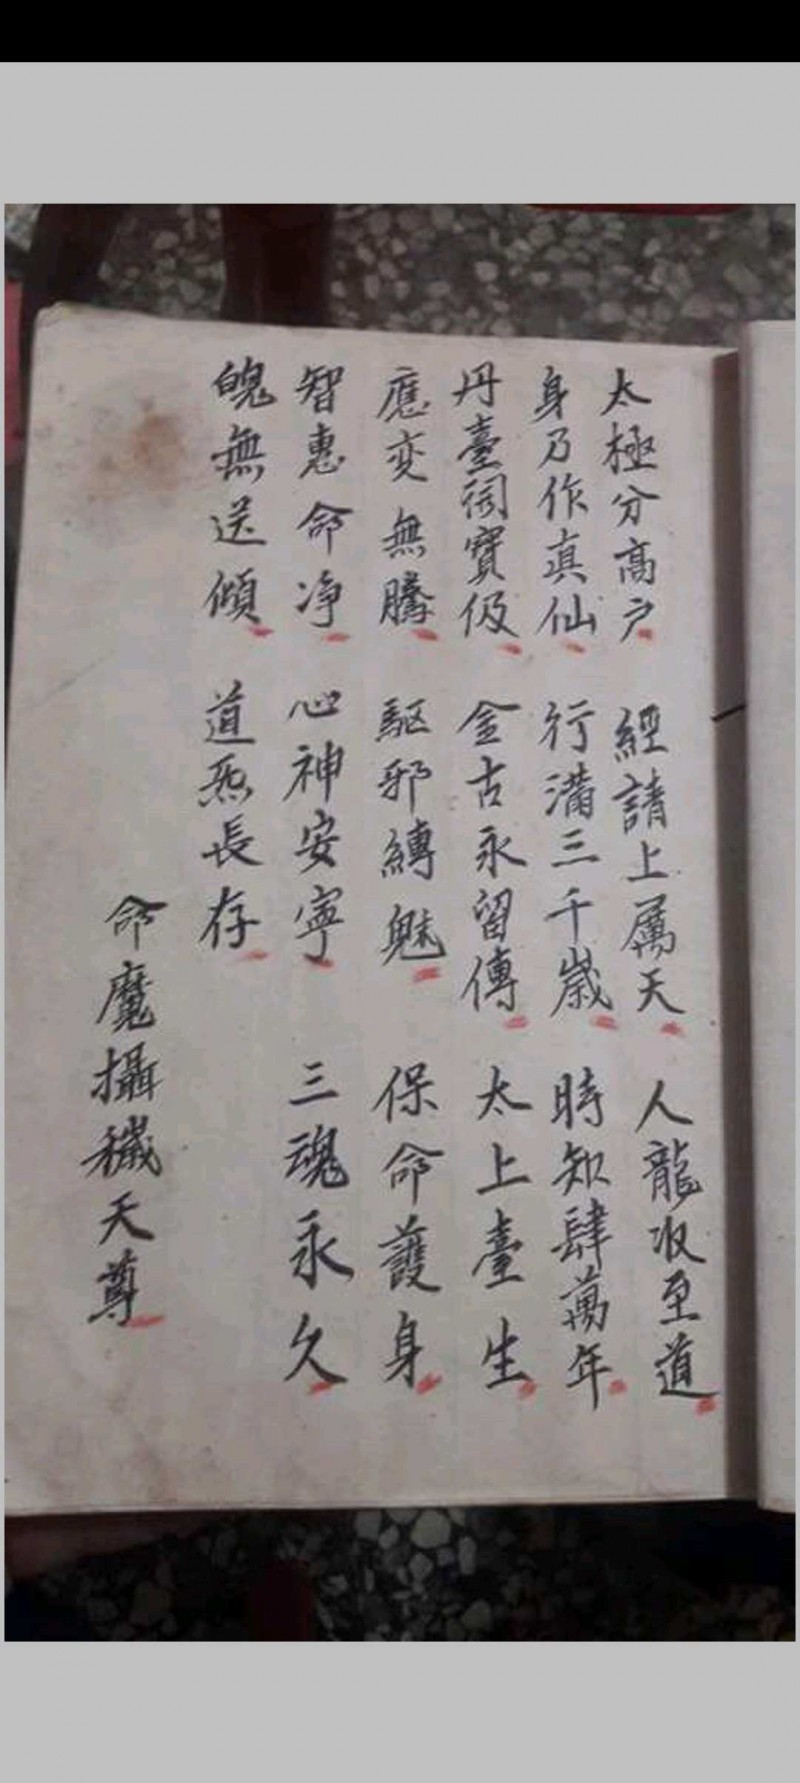 太極分高戶 經請上厲天 人龍収至道
身乃作真仙 行滿三千歲 時知肆萬年
丹臺祠寶伋 金古永留傳 太上臺生
應变無騰 驅邪縛魅 保命護身
智惠命净 心神安寧 三魂永久
魄無送傾 道炁長存
命魔攝穢天尊